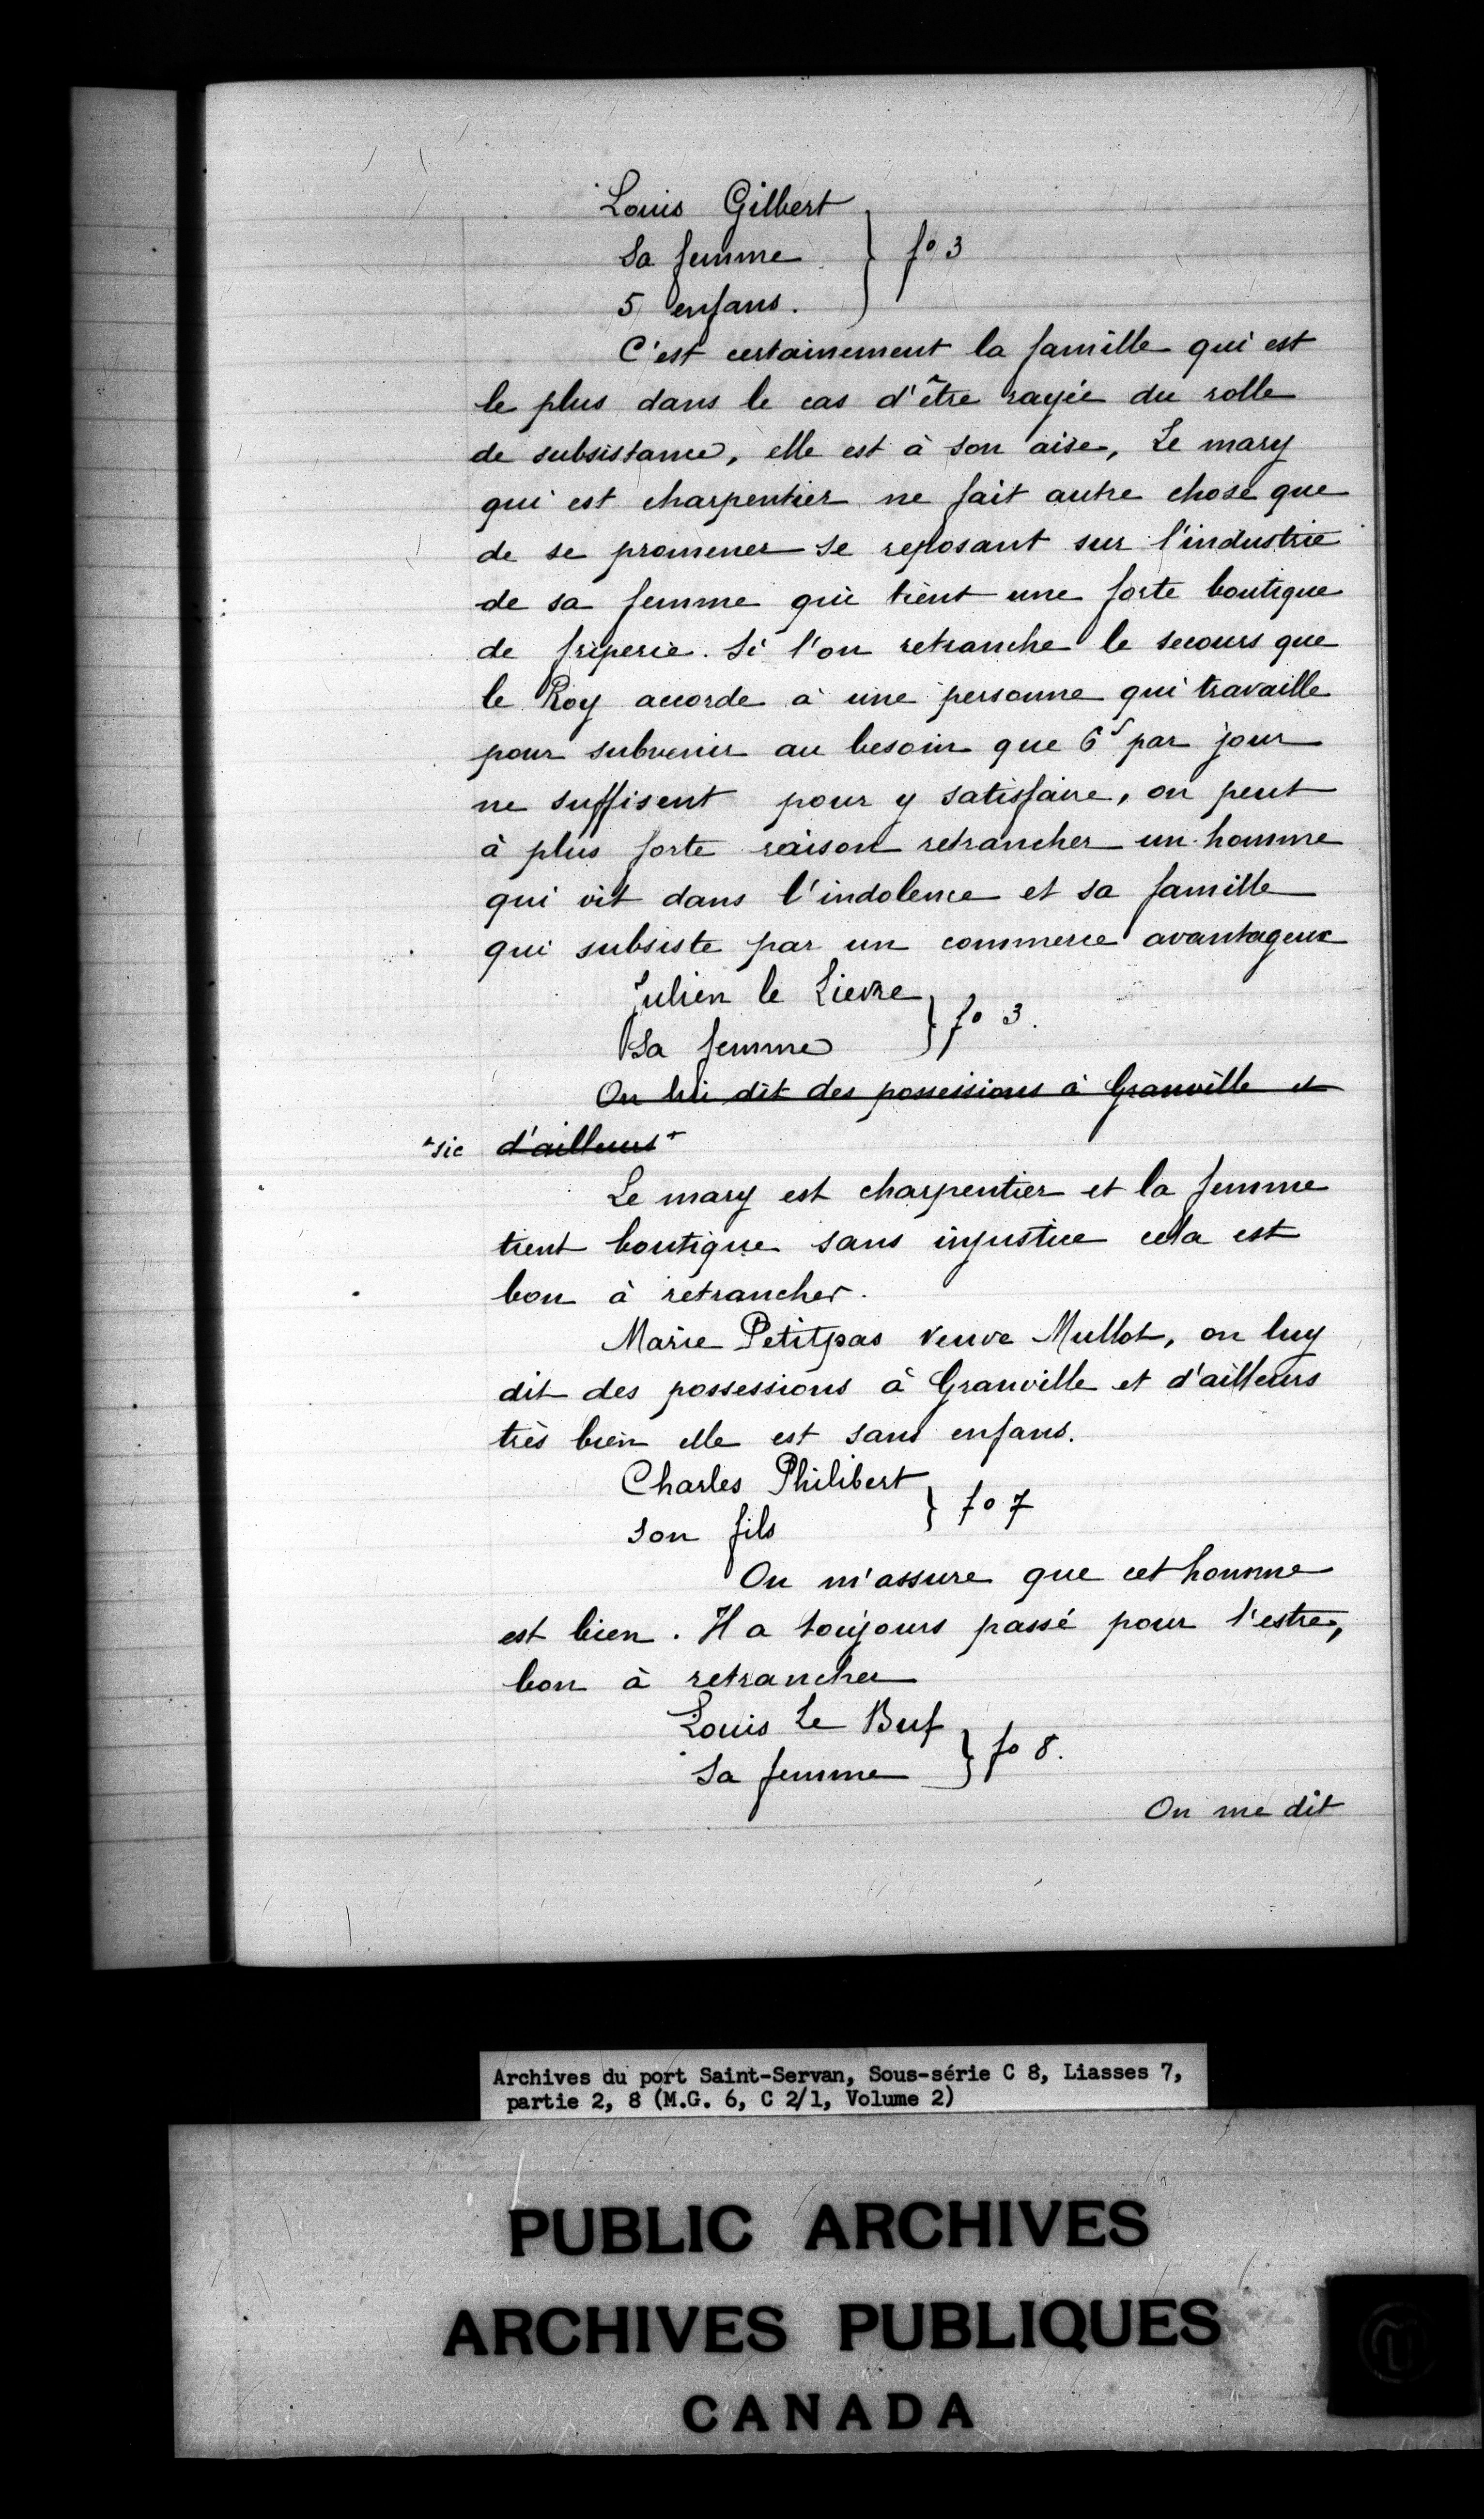 Louis Gilbert
Sa femme } fo 3
5 enfans.
C'est certainement la famille qui est
le plus dans le cas d'être rayée du rolle
de subsistance, elle est à son aise, Le mary
qui est charpentier ne fait autre chose que
de se promener se reposant sur l'industrie
de sa femme qui tient une forte boutique
de friperie. Si l'on retranche le secours que
le Roy accorde à une personne qui travaille
pour subvenir au besoin que 6s par jour
ne suffisent pour y satisfaire, on peut
à plus forte raison retrancher un homme
qui vit dans l'indolence et sa famille
qui subsiste par un commerce avantageux
Julien le Lievre
Sa femme } fo 3.
On lui dit des possessions à Granville et
+sic d'ailleurs+
Le mary est charpentier et la femme
tient boutique sans injustice cela est
bon à retrancher.
Marie Petitpas veuve Mullot, on luy
dit des possessions à Granville et d'ailleurs
très bien elle est sans enfans.
Charles Philibert
son fils } fo 7
On m'assure que cet homme
est bien. Il a toujours passé pour l'estre,
bon à retrancher
Louis Le Buf
Sa femme } fo 8.
On me dit
Archives du port Saint-Servan, Sous-série C 8, Liasses 7,
partie 2, 8 (M.G. 6, C 2/1, Volume 2)
PUBLIC ARCHIVES
ARCHIVES PUBLIQUES
CANADA